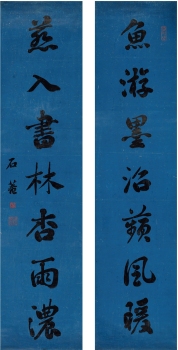 魚游墨沼蘋風暖
燕入書林杏雨濃
石菴